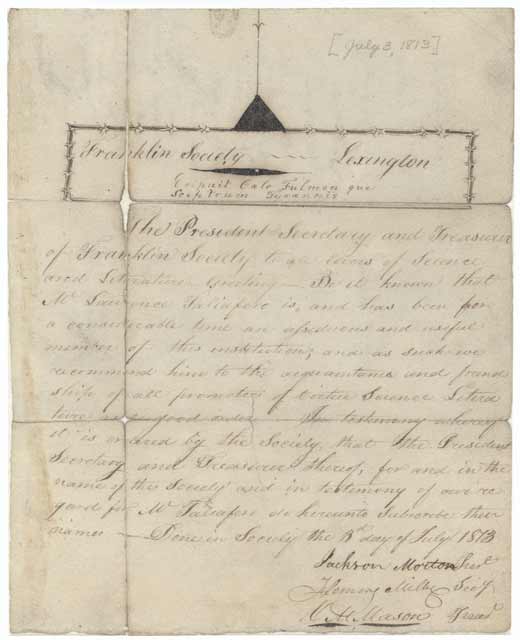 [July 3, 1813]
Franklin Society — Lexington
Eripuit Calo Fulmen que
Sceptrum Tyrannis
The President Secretary and Treasurer
of Franklin Society to all lovers of Science
and Literature Greeting — Be it known that
Mr Lawrence Taliaferro is, and has been for
a considerable time an assiduous and useful
member of this institution; and as such we
recommend him to the acquaintance and friend
ship of all promoters of Virtue Science Litera
ture and good order — In testimony whereof
it is ordered by the Society, that the President
Secretary and Treasurer thereof, for and in the
name of the Society and in testimony of our re
gard for Mr Taliaferro do hereunto Subscribe their
names — Done in Society the 3d day of July 1813
Jackson Morton Prest
Fleming Secy
C. H. Mason Treasr